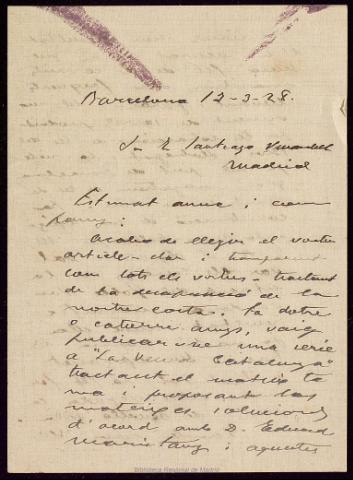 Barcelona 12-3-28.
Sr. D. Santiago
Madrid
Estimat amic i com
pany:
Acabo de llegir el vostre
article - clar i transparent
com tots els vostres - tractant
de la desaparició de la
nostra costa. Fa dotze
o catorze anys, vaig
publicar una serie
a "La Veu de Catalunya"
tractant el mateix te
ma i proposant las
mateixes solucions
d'acord amb D. Eduard
Maristany i aquestes
Biblioteca Regional de Madrid